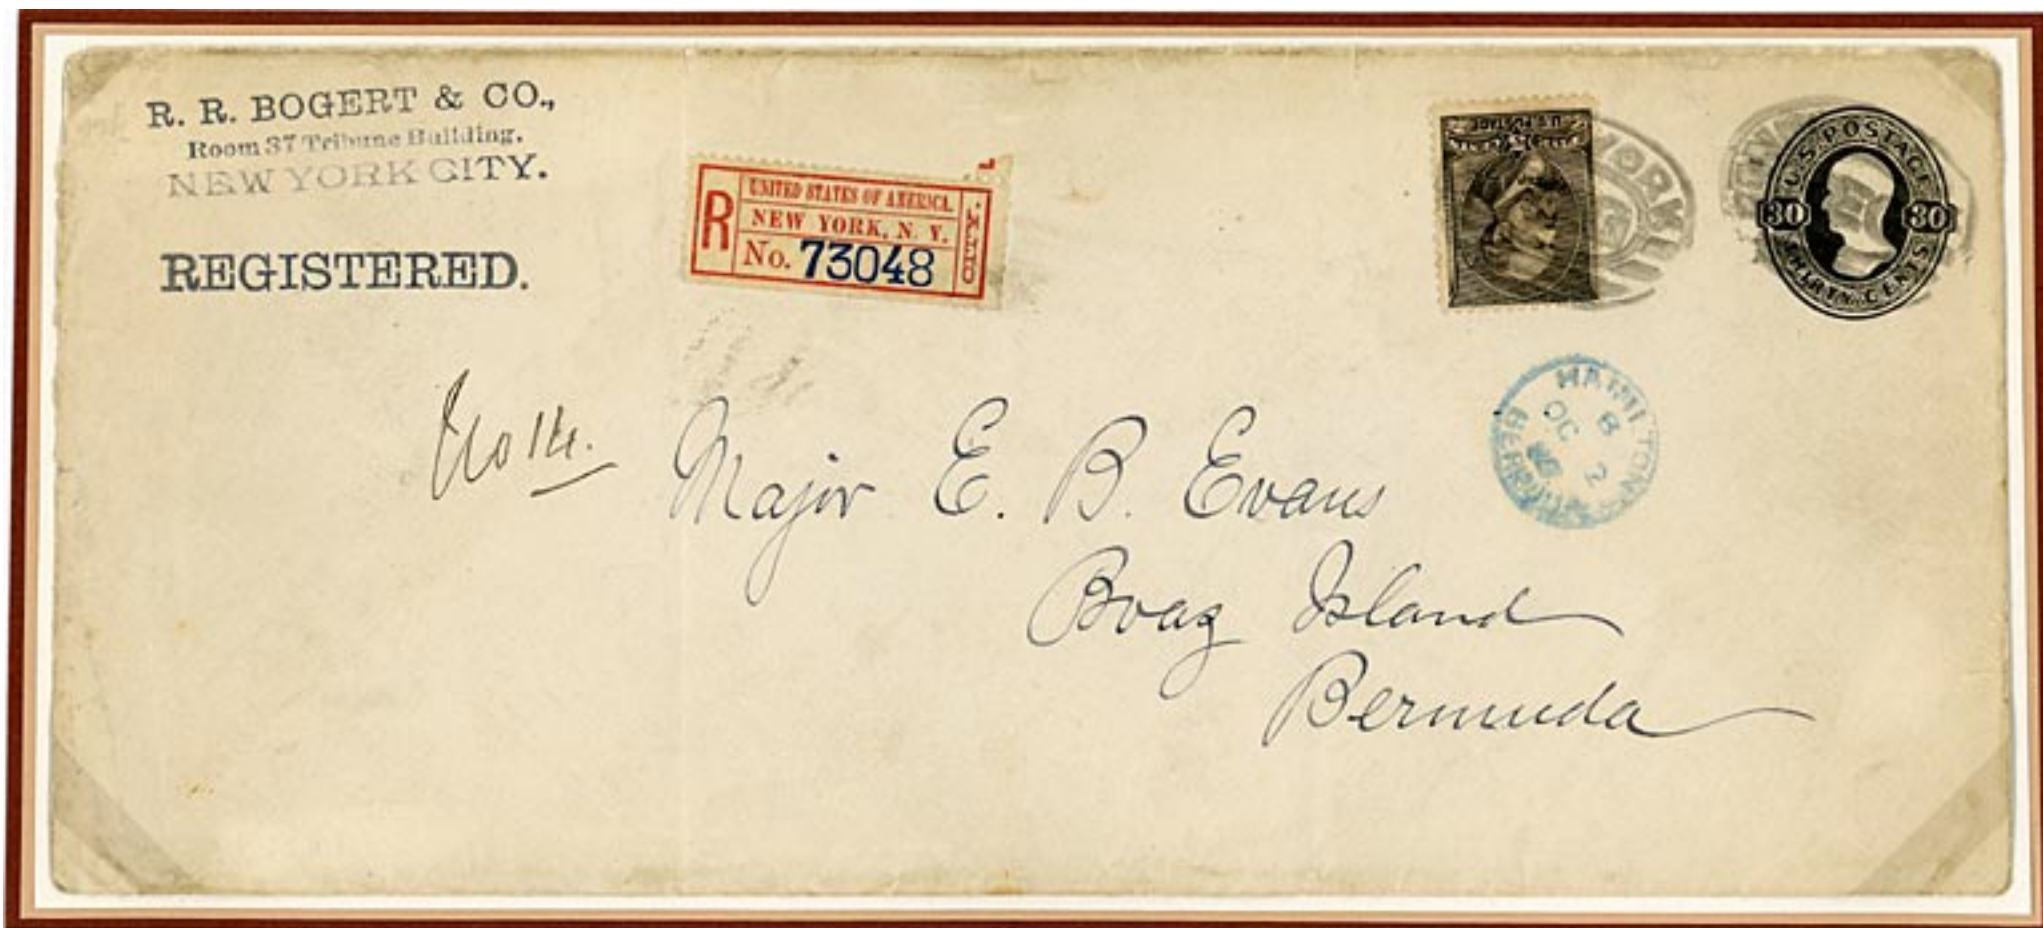 R. R. BOGERT & CO.,
Room 37 Tribune Building.
NEW YORK CITY.
REGISTERED.
R
UNITED STATES OF AMERICA.
NEW YORK, N. Y.
No. 73048
U.S. POSTAGE
YORK
U.S. POSTAGE
30 30
THIRTY CENTS
HAMILTON
OC 2
BERMUDA
Major E. B. Evans
Boaz Island
Bermuda